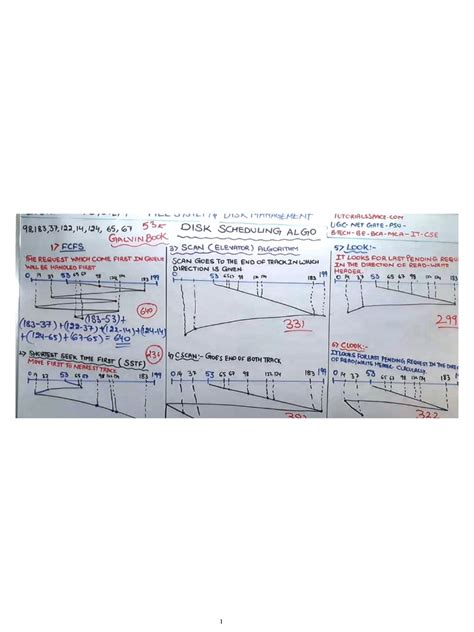 FILE SYSTEM & DISK MANAGEMENT
TUTORIALSSPACE.COM
98,183,37,122,14,124, 65, 67
53
GALVIN BOOK
DISK SCHEDULING ALGO
UGC-NET GATE-PSU-
BTECH-BE-BCA-MCA-IT-CSE
1) FCFS
THE REQUEST WHICH COME FIRST IN QUEUE
WILL BE HANDLED FIRST
0 14 37 53 65 67 98 122 124 183 199
640
(183-53)+
(183-37)+(122-37)+(122-14)+(124-14)
+(124-65)+(67-65) = 640
236
2) SHORTEST SEEK TIME FIRST (SSTF)
MOVE FIRST TO NEAREST TRACK
0 14 37 53 65 67 98 122 124 183 199
3) SCAN (ELEVATOR) ALGORITHM
SCAN GOES TO THE END OF TRACK IN WHICH
DIRECTION IS GIVEN
0 14 37 53 65 67 98 122 124 183 199
331
4) CSCAN:- GOES END OF BOTH TRACK
0 14 37 53 65 67 98 122 124 183 199
5) LOOK:-
IT LOOKS FOR LAST PENDING REQUE
IN THE DIRECTION OF READ-WRITE
HEADER.
0 14 37 53 65 67 98 122 124 183 199
299
6) CLOOK:-
IT LOOKS FOR LAST PENDING REQUEST IN THE DIRE
OF READ/WRITE HEADER
0 14 37 53 65 67 98 122 124 183
322
1